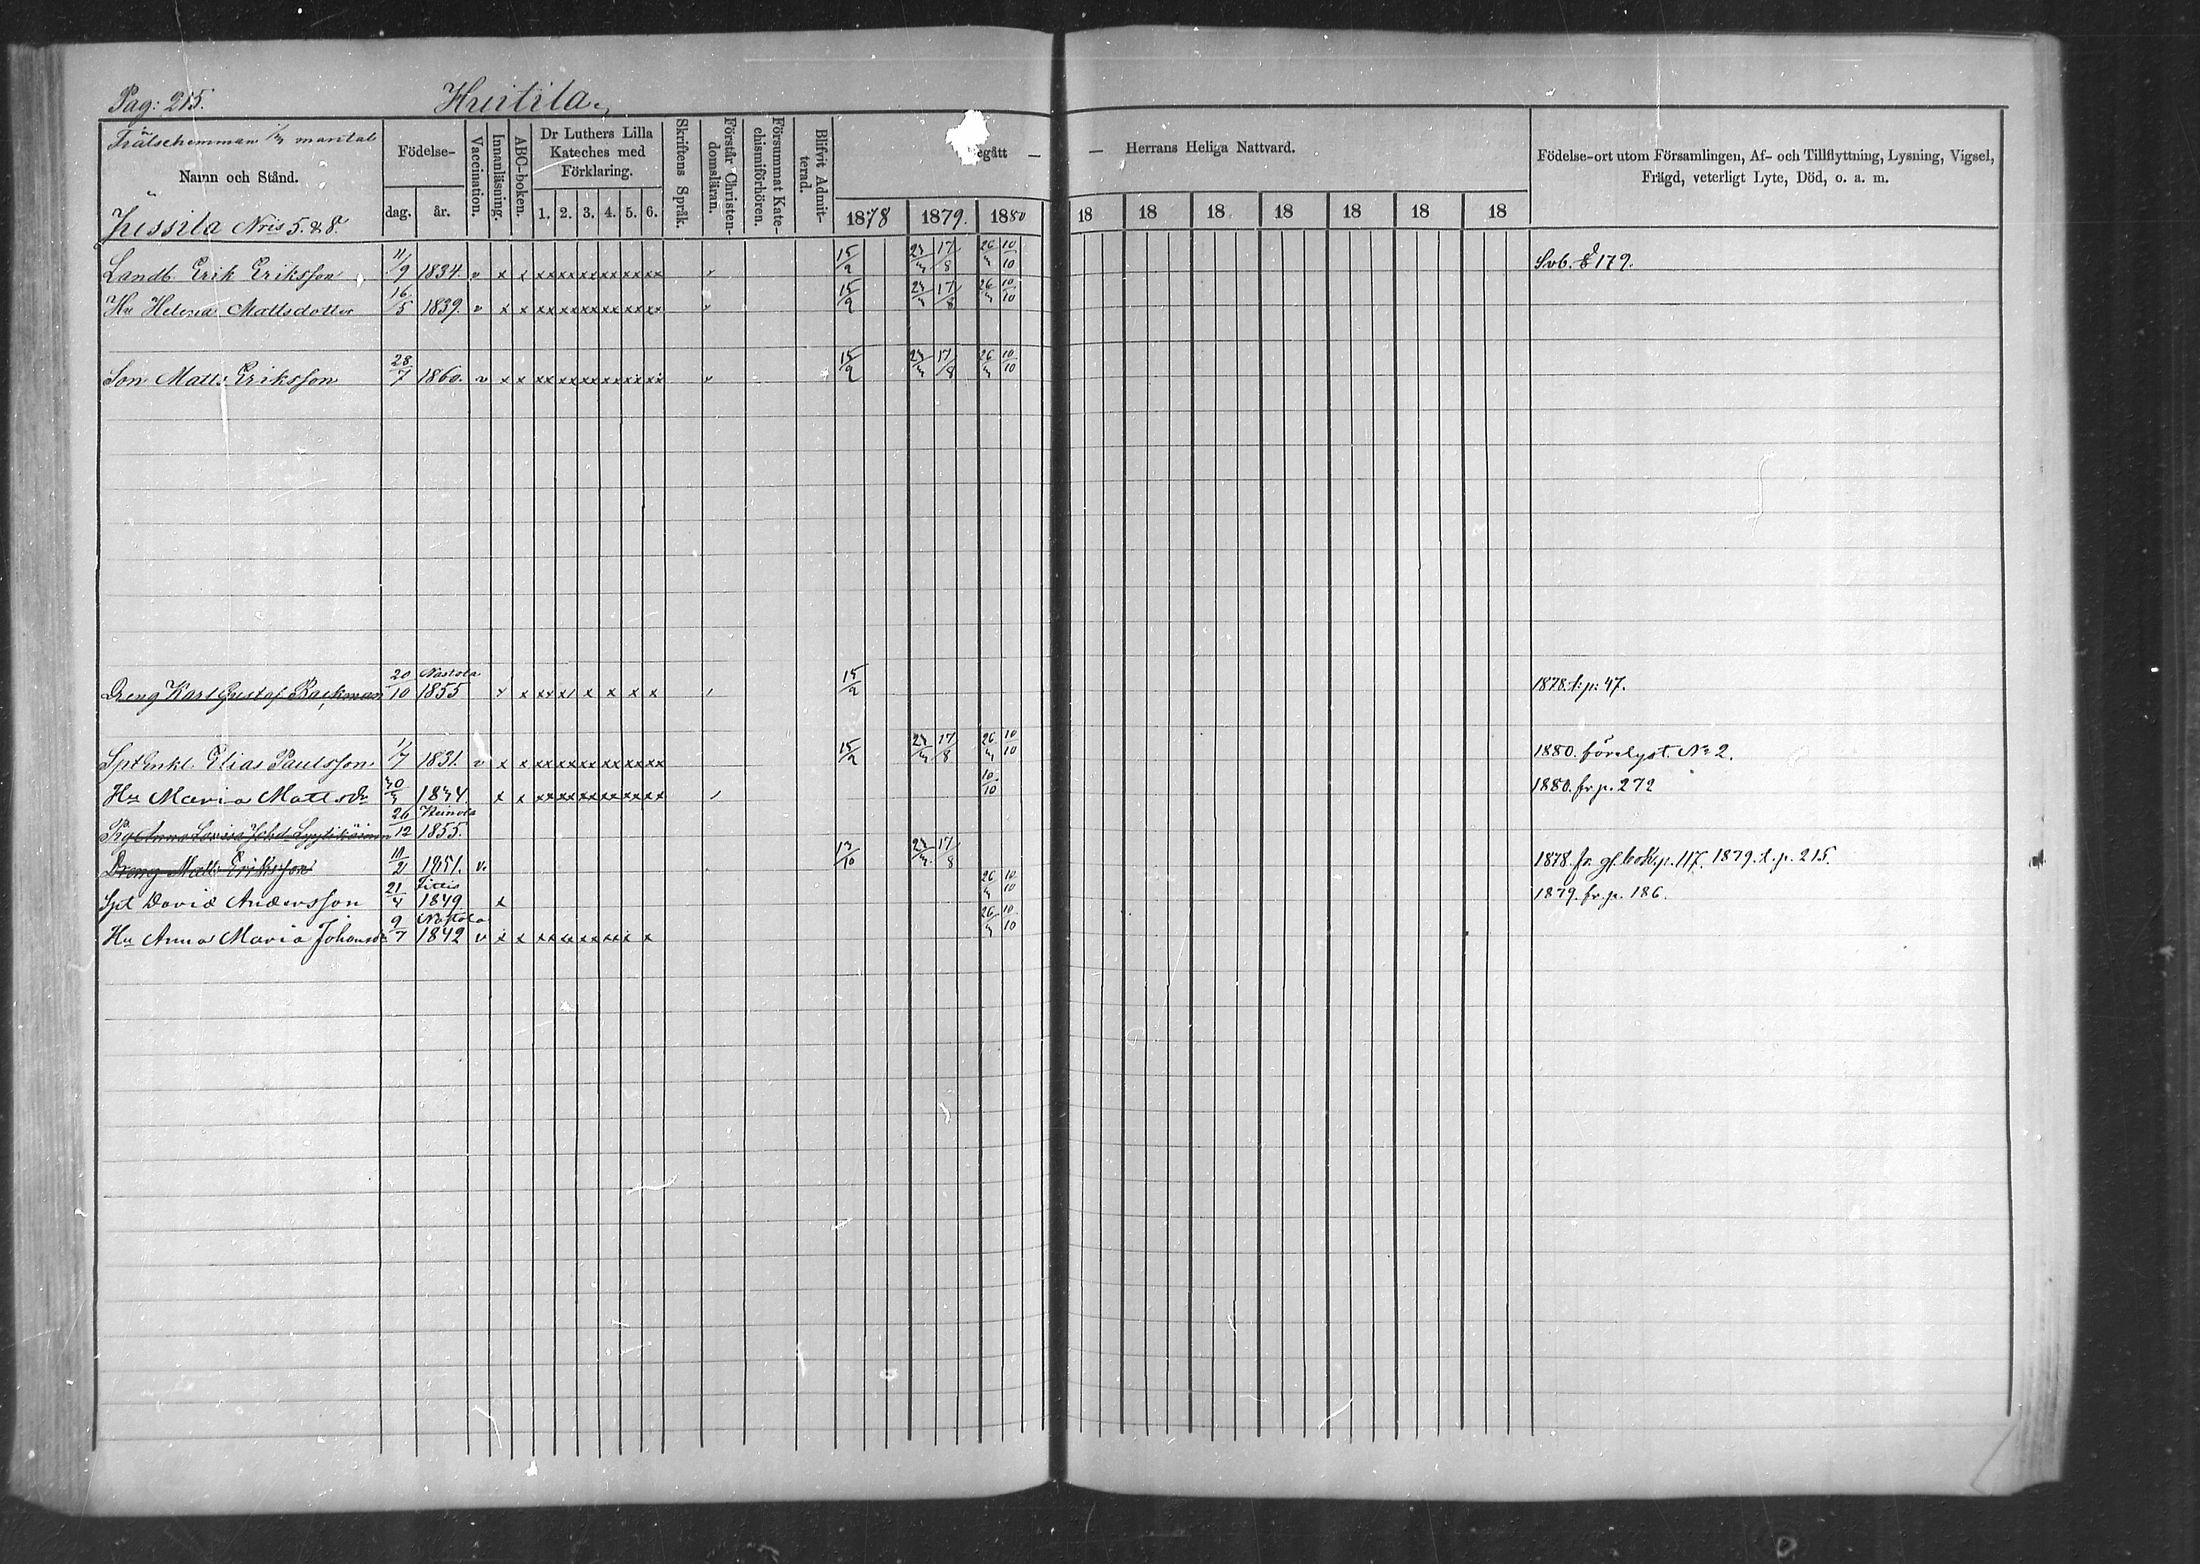 Pag: 215. Huitila,
Frälsehemman mantal
Namn och Stånd.
Jussila Nris 5. & 8.
Födelse-
dag. år.
Vaccination.
Innanläsning.
ABC-boken.
Dr Luthers Lilla
Kateches med
Förklaring.
1. 2. 3. 4. 5. 6.
Skriftens Språk.
Förstår Christen-
domsläran.
Försummat Kate-
chismiförhören.
Blifvit Admit-
terad.
egått — — Herrans Heliga Nattvard.
1878 1879. 1880 18 18 18 18 18 18 18
Födelse-ort utom Församlingen, Af- och Tillflyttning, Lysning, Vigsel,
Frägd, veterligt Lyte, Död, o. a. m.
Landb. Erik Eriksson 11/9 1834. v x x xx xx xx xx xx xx 15/9 17/8 26 10/10 179.
Hu Helena Mattsdotter 16/5 1839. v x x xx xx xx xx xx xx 15/9 17/8 26 10/10
Son Matts Eriksson 28/7 1860. v x x xx xx xx xx xx xx 15/9 17/8 26 10/10
Dreng Karl Gustaf Backman 20/10 Nastola 1855 x x xx x x x x x 15/9 1878. t. p. 47.
Spt Enkl. Elias Paulsson 1/7 1831. v x x xx xx xx xx xx xx 15/9 17/8 26 10/10 1880. No 2.
Hu Maria Mattsdr 1834. x x xx xx xx xx xx xx 10/10 1880. fr. p. 272
Anna Lovisa Johd. Lyytikäinen 26/12 Heinola 1855.
Dreng Matts Eriksson 2 1851. v. 13/10 17/8 1878. fr. gl. bok. p. 117. 1879. t. p. 215.
Spt David Andersson 21/4 Sittis 1849 x 26 10/10 1879. fr. p. 186.
Hu Anna Maria Johansdr 9/7 Nastola 1842 v x x xx xx xx xx x x 26 10/10